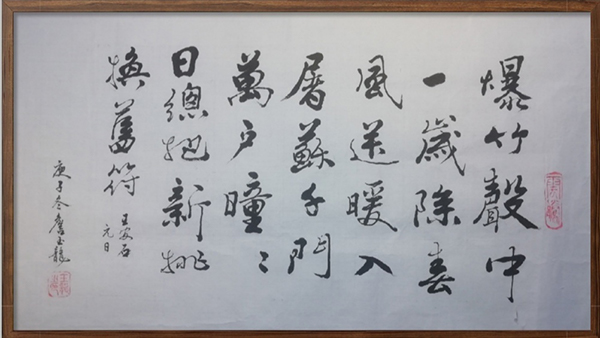 爆竹聲中
一歲除春
風送暖入
屠蘇千門
萬戶曈〻
日總把新桃
換舊符
王安石
元日
庚子冬詹玉龍